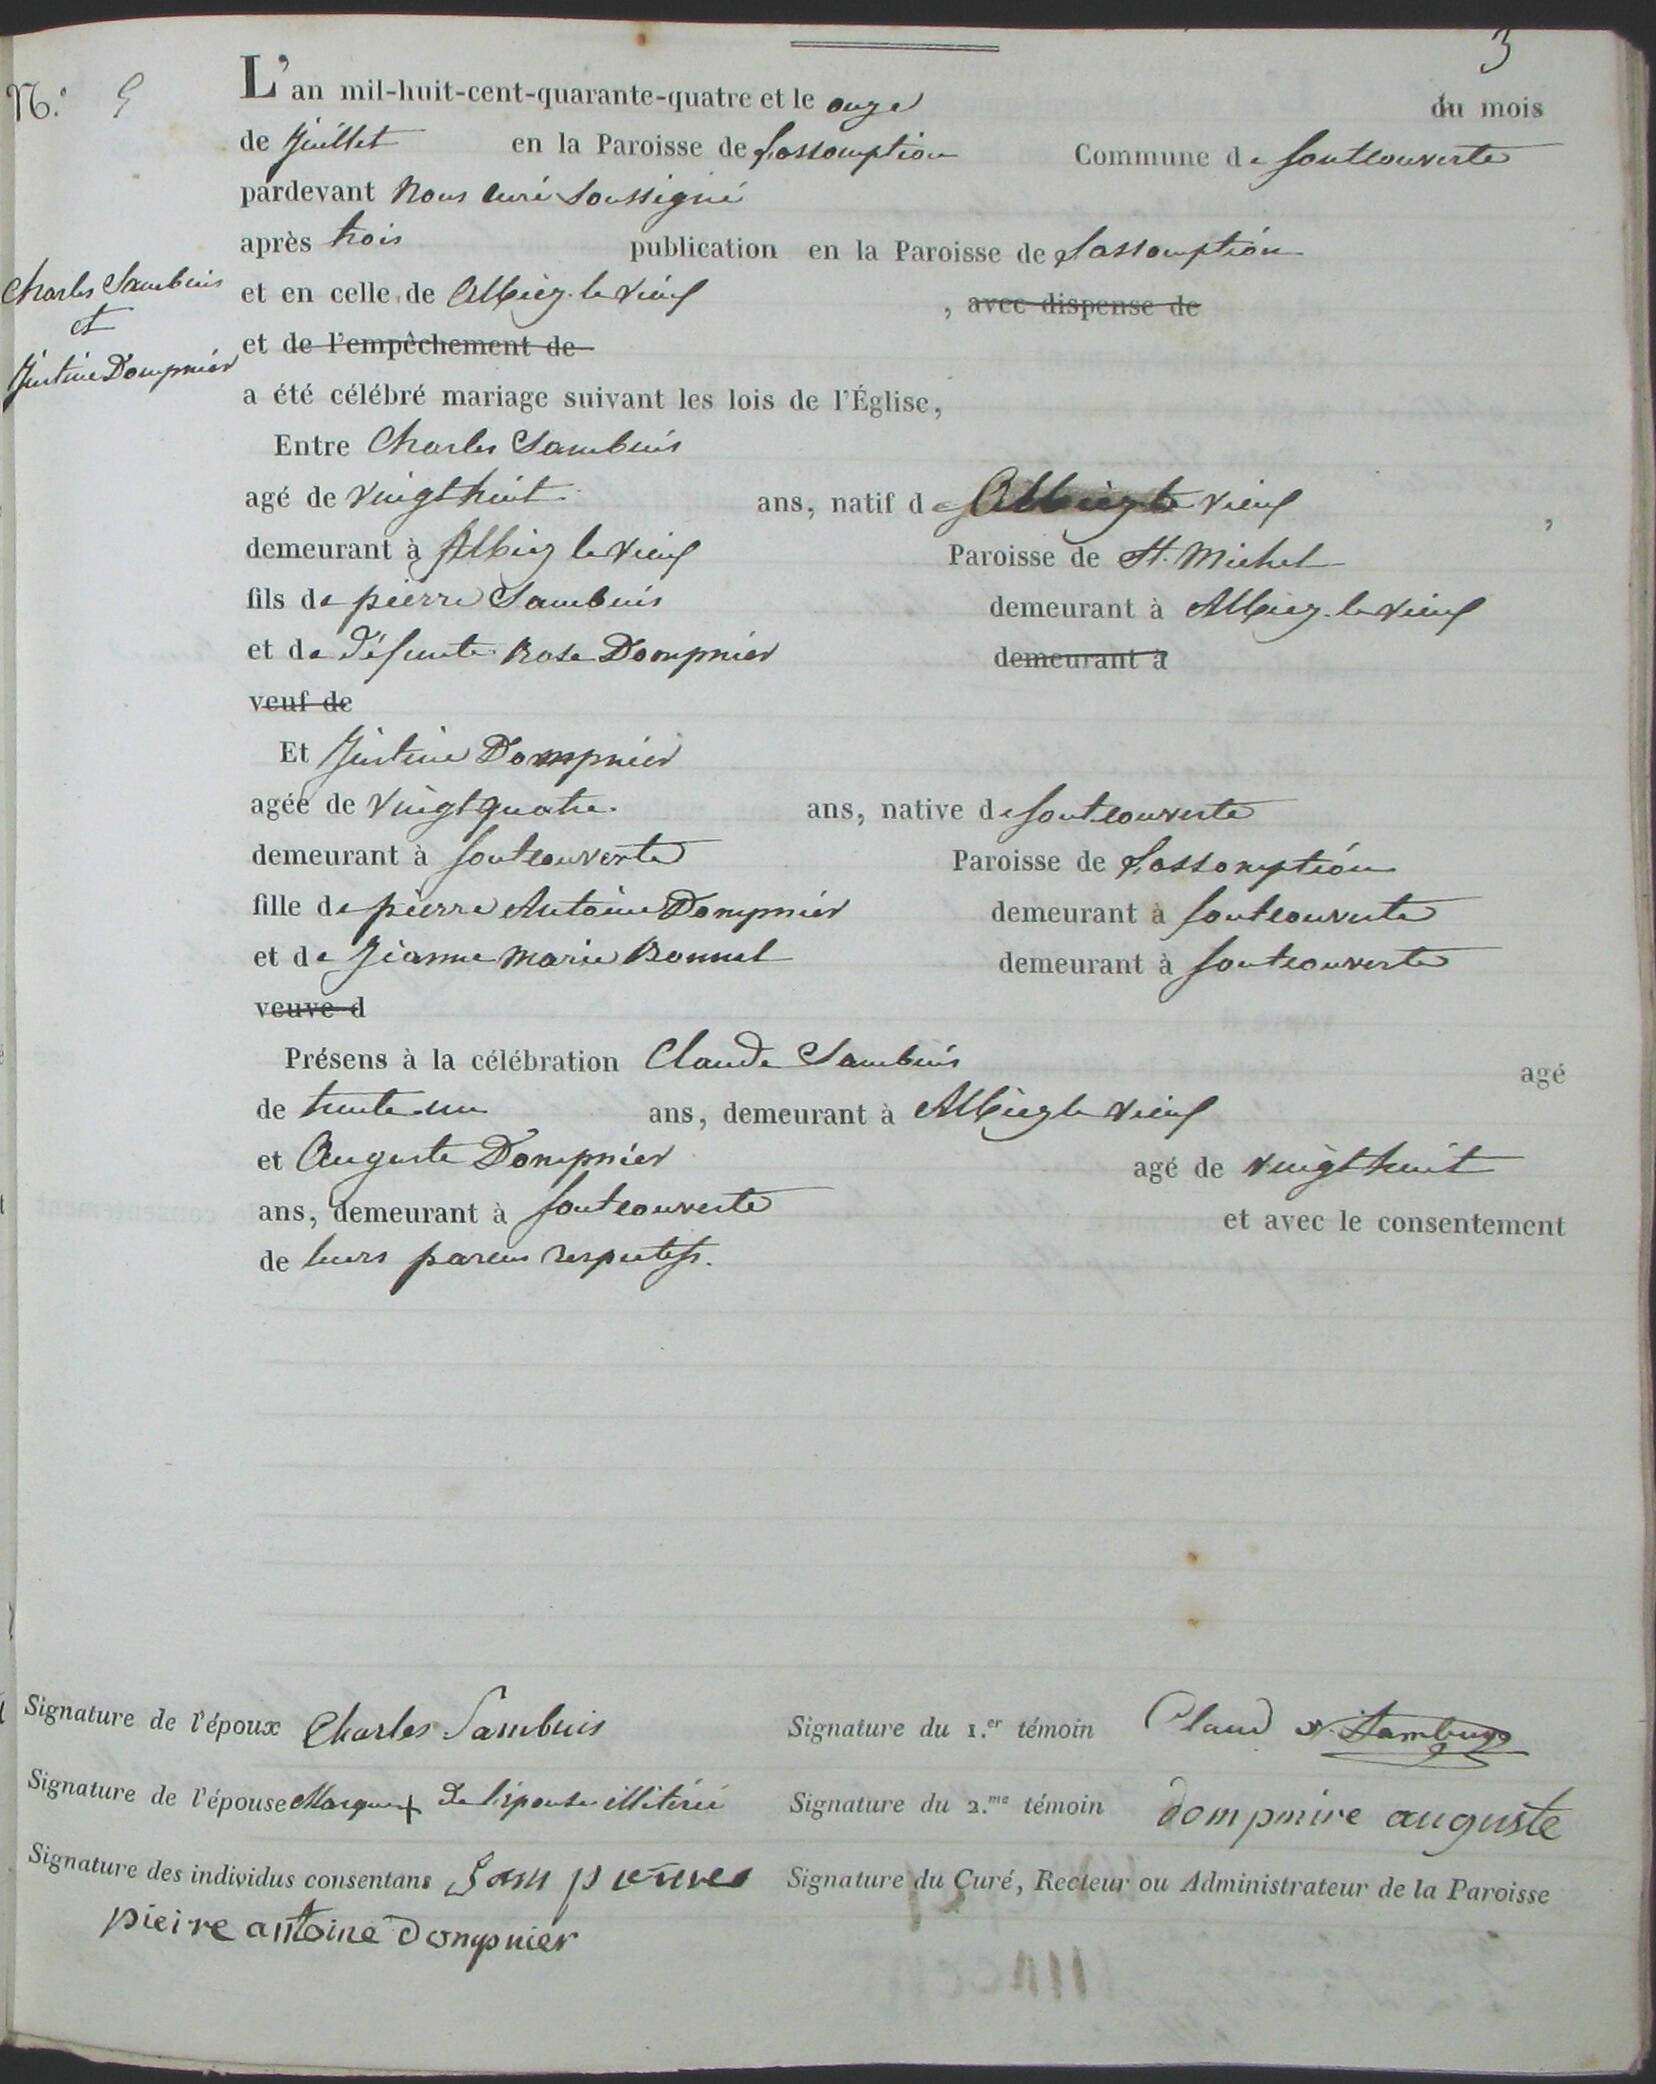 3
N.° 5
L'an mil-huit-cent-quarante-quatre et le onze du mois
de Juillet en la Paroisse de L'assomption Commune de fontcouverte
pardevant Nous Curé soussigné
après trois publication en la Paroisse de L'assomption
Charles Sambuis
et
Justine Dompnier
et en celle de Albiez-le-vieux, avec dispense de
et de l'empêchement de
a été célébré mariage suivant les lois de l'Église,
Entre Charles Sambuis
agé de vingt huit ans, natif d Albiez le vieux,
demeurant à Albiez le vieux Paroisse de St. Michel
fils de pierre Sambuis demeurant à Albiez-le vieux
et de défunte Rose Dompnier demeurant à
veuf de
Et Justine Dompnier
agée de vingt quatre ans, native de fontcouverte
demeurant à fontcouverte Paroisse de L'assomption
fille de pierre Antoine Dompnier demeurant à fontcouverte
et de Jeanne Marie Bonnel demeurant à fontcouverte
veuve d
Présens à la célébration Claude Sambuis agé
de trente-un ans, demeurant à Albiez le vieux
et Auguste Dompnier agé de vingt huit
ans, demeurant à fontcouverte et avec le consentement
de leurs parens respectifs.
Signature de l'époux Charles Sambuis Signature du 1.er témoin Claud Sambuis
Signature de l'épouse Marque + de l'épouse illitérée Signature du 2.me témoin dompnire auguste
Signature des individus consentans Signature du Curé, Recteur ou Administrateur de la Paroisse
pieire antoine dompnier